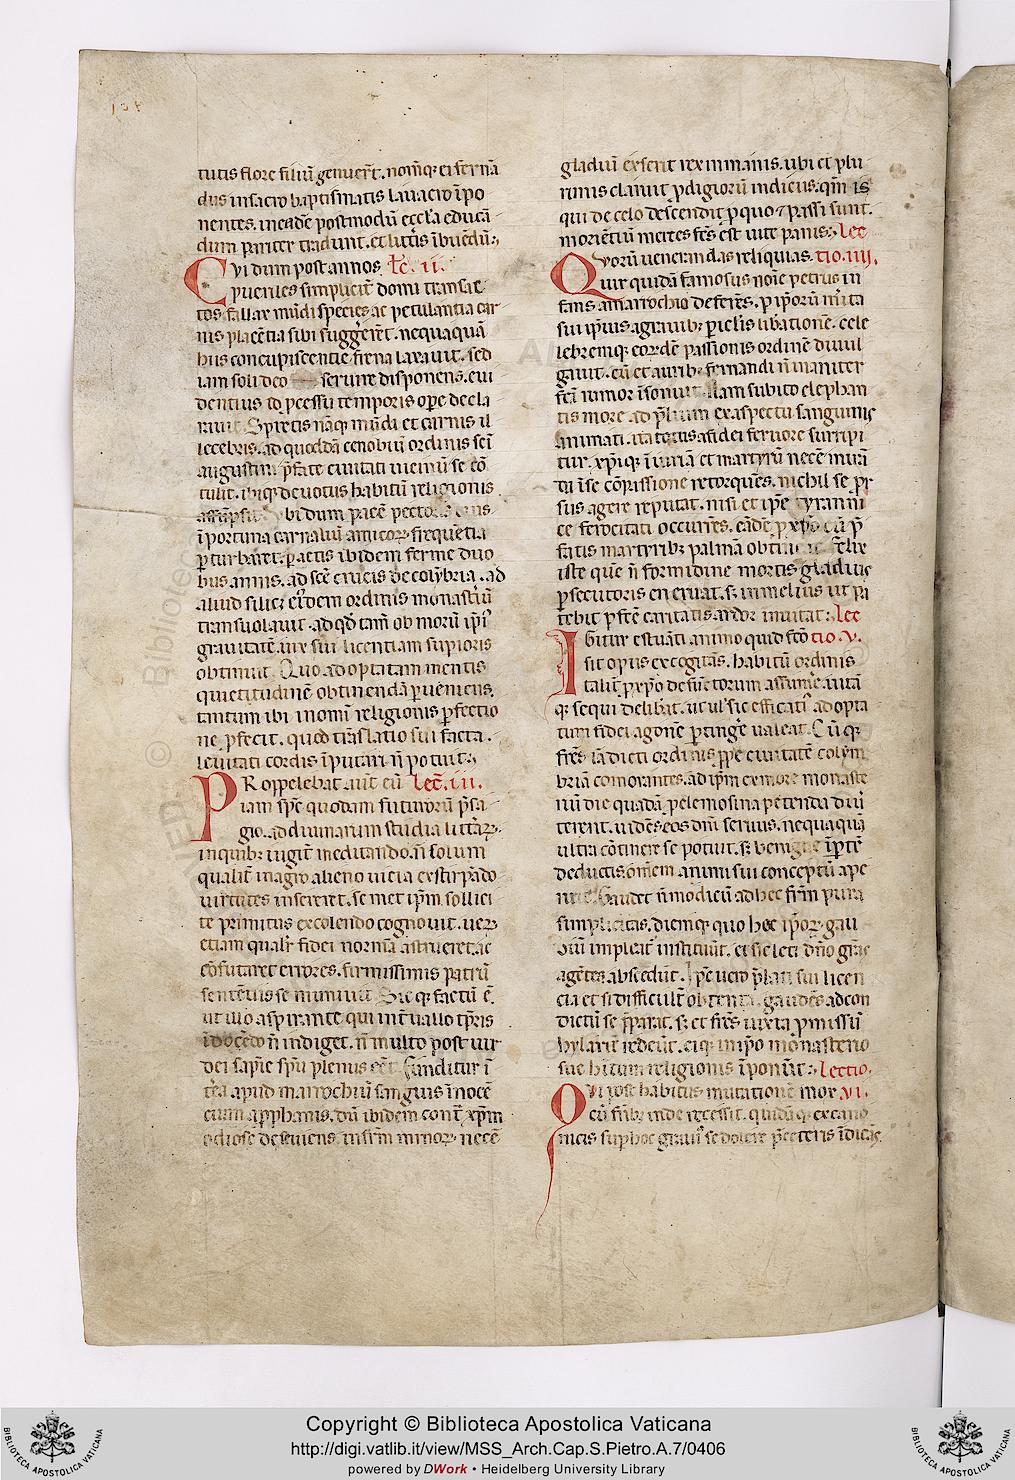 tutis flore filiū genuer̄t. nom̄q; ei ferna
dus in sacro baptismatis lauacro īpo
nentes. in eadē postmodū eccl'ia educā
dum pariter tradunt. et litt̄is ībuēdū.
Cvi dum post annos. Lc̄. ii.
pueriles simplicit̄ domi transac
tos. fallax mūdi species ac petulantia car
nis placētia sibi suggerer̄t. nequaquā
hiis concupiscentie frena laxauit. sed
iam soli deo seruire disponens. eui
dentius id p̱cessu temporis ope decla
rauit. Spretis nāq; mūdi et carnis il
lecebris. ad quoddā cenobiū ordinis sc̄i
augustini p̄fate ciuitati uicinū se cō
tulit. ibiq; deuotus habitū religionis
assūpsit. Vbi dum pacē pectoris eius
īportuna carnaliū amicoꝝ frequētia
ꝑturbaret. ꝑactis ibidem ferme duo
bus annis. ad sc̄e crucis de colībria. ad
aliud silic; eiꝰdem ordinis monast̄iū
transuolauit. ad qd̄ tam̄ ob morū ip̄iꝰ
grauitatē uix sui licentiam suꝑioris
obtinuit. Quo ad optatam mentis
quietitudinē obtinendā ꝑueniens.
tantum ibi in omni religionis ꝑfectio
ne ꝓfecit. quod trāslatio sui facta.
leuitati cordis īputari n̄ potuit.
PRoppelebat aut̄ eū Lec̄. iii.
iam spē quodam futuroꝝ p̄sa
gio. ad diuinarum studia litt̄aꝝ.
in quibꝫ iugit̄ meditando. n̄ solum
qualit̄ in agro alieno uicia exstirpādo
uirtutes insereret. se met ip̄m sollici
te primitus excolendo cognouit. ueꝝ
etiam qualit̄ fidei normā astrueret. ac
cōfutaret errores. firmissimis patrū
sentētiis se muniuit. Sic q; factū ē.
ut illo aspirante qui int̄uallo tp̄ris
ī docēdo n̄ indiget. n̄ multo post uir
dei sapīe sp̄u plenus eēt. Funditur ī
t̄ea apud marrochiū sanguis īnocē
cium a ꝓphanis. dū ibidem cont̄ xp̄m
odiose deseuiens. in sc̄m minoꝝ necē
gladiū exserit rex inmanis. ubi et plu
rimis claruit ꝓdigiorū indiciis. qm̄ is
qui de celo descendit ꝓ quo ⁊ passi sunt.
moriētiū merces fc̄s est uite panis. Lec
Quorū uenerandas reliquias. tio. iiii.
uir quidā famosus noīe petrus in
fans a marrochio deferēs. ꝑ ip̄orū m̄ita
sui ip̄ius a grauibꝫ ꝑiclis lib̄ationē. cele
lebremq; eoꝝdē passionis ordinē diuul
gauit. cū et auribꝫ fernandi n̄ inaniter
fc̄i rumor īsonuit. Nam subito elephan
tis more ad p̄lium ex aspectu sanguinis
animati. ita totus a fidei feruore surripi
tur. xp̄iq; īiuriā et martyrū necē miūī
da ī se cōpassione retorquēs. nichil se pr̄
sus agere reputat. nisi et ip̄e tyranni
ce ferocitati occurrēs. eādē ꝓ xp̄o cū p̄
fatis martyribꝫ palmā obtineat. Felix
iste quē n̄ formidine mortis gladiꝰ
ꝑsecutoris eneruat. sꝫ in melius ut pa
tebit ꝓfc̄e caritatis ardor inuitat. Lec
IGitur estuāti animo quid fc̄o tio. v.
sit opus excogitās. habitū ordinis
talit̄ ꝓ xp̄o defūctorum assumē. uitā
q; sequi deliberat. ut ul' sic efficatiꝰ ad opta
tum fidei agonē ꝑtingē ualeat. Cū q;
fr̄es iā dicti ordinis ꝓpe ciuitatē colim
briā comorantes. ad ip̄m ex more monaste
riū die quadā. ꝑ elemosina petenda diu
terent. uidēs eos dn̄i seruus. nequaquā
ultra cōtinere se potuit. sꝫ benigne īꝑtē
deductis. om̄em animi sui conceptū ape
ruit. Gaudet n̄ modicū ad hec fr̄m pura
simplicitas. diemq; quo hec ip̄oꝝ gau
dium impleat̄ instituūt. et sic leti dn̄o grās
agētes abscedūt. Ip̄e uero p̄lati sui licen
cia et si difficult̄ obtenta. gaudēs ad con
dictū se p̄parat. sꝫ et fr̄es iuxta ꝓmissū
hylarit̄ redeūt. eiq; in ip̄o monasterio
sue habitum religionis īponūt. Lectio.
Qui post habitus mutationē mox vi.
cū fr̄ibꝫ inde recessit. quidāq; ex cano
nicis suꝑ hoc grauiꝰ se dolere p̄ ceteris īdicās.
Copyright © Biblioteca Apostolica Vaticana
http://digi.vatlib.it/view/MSS_Arch.Cap.S.Pietro.A.7/0406
powered by DWork • Heidelberg University Library
BIBLIOTECA APOSTOLICA VATICANA
BIBLIOTECA APOSTOLICA VATICANA